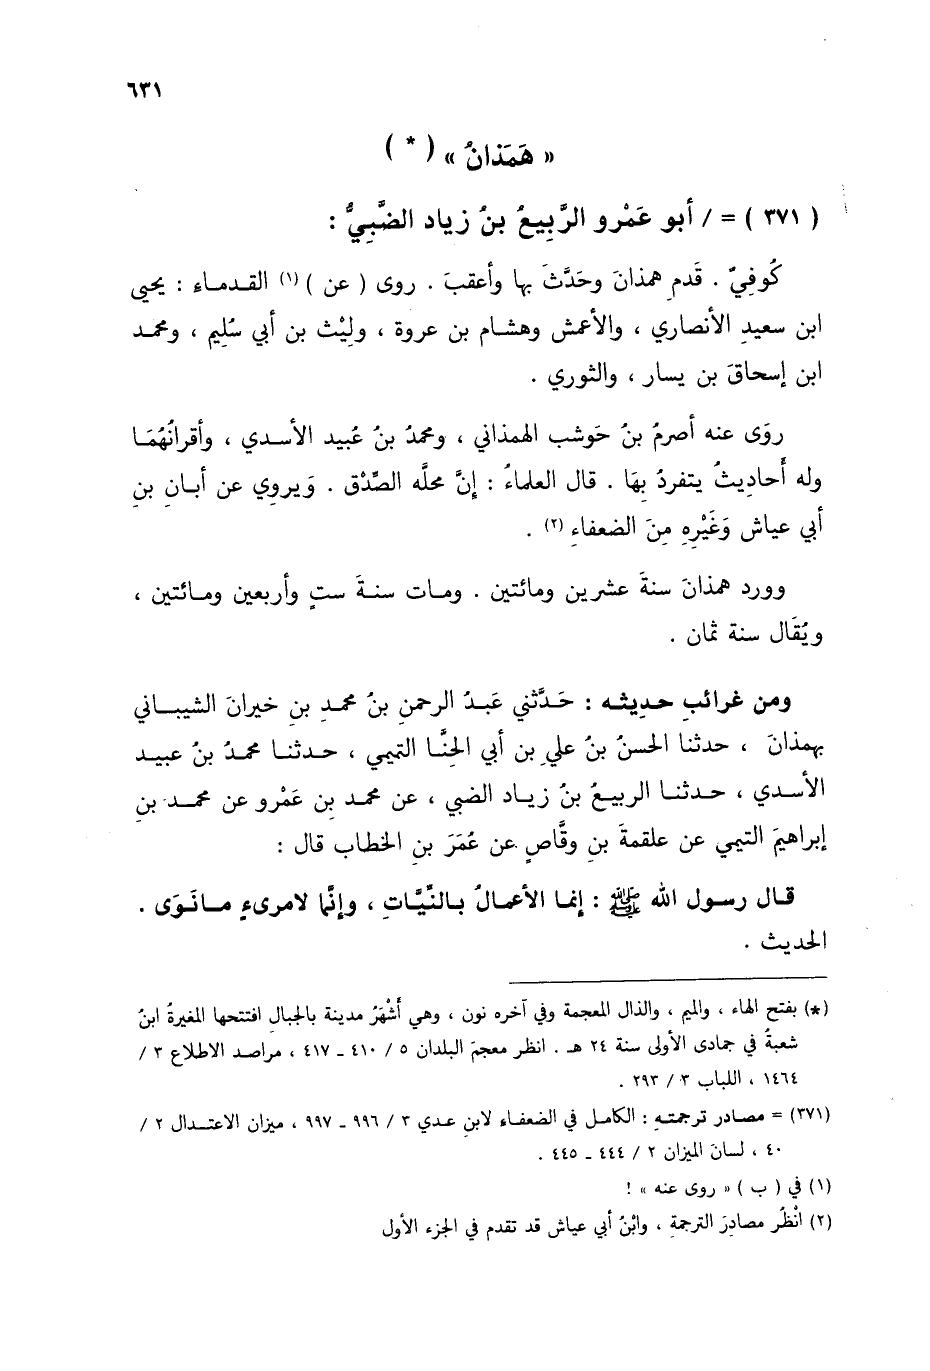 ٦٣١
« هَمَذانُ » ( * )
( ٣٧١ ) = / أبو عَمْرو الرَّبِيعُ بنُ زياد الضَّبِيُّ :
كُوفِيٌ . قَدِم همذانَ وحَدَّثَ بها وأعقبَ . روى ( عن ) (١) القدماء : يحيى
ابن سعيدِ الأنصاري ، والأعمش وهشام بن عروة ، وليْث بن أبي سُليم ، ومحمد
ابن إسحاقَ بن يسار ، والثوري .
روَى عنه أصرمُ بنُ حَوشب الهمذاني ، ومحمدُ بنُ عُبيد الأسدي ، وأقرانُهُمَا
وله أحاديثُ يتفردُ بِهَا . قال العلماءُ : إنَّ محلَّه الصِّدْق . وَيروِي عن أبانِ بنِ
أبي عياش وَغَيْرِهِ مِنَ الضعفاءِ (٢) .
وورد همذانَ سنةَ عشرين ومائتين . ومات سنةَ ستٍ وأربعين ومائتين ،
ويُقَال سنة ثمان .
ومن غرائبِ حديثه : حَدَّثني عَبدُ الرحمنِ بنُ محمدِ بنِ خيرانَ الشيباني
بهمذانَ ، حدثنا الحسنُ بنُ علي بن أبي الحِنَّا التميمي ، حدثنا محمدُ بنُ عبيد
الأسدي ، حدثنا الربيعُ بنُ زياد الضبي ، عن محمد بنِ عَمْرو عن محمد بنِ
إبراهيمَ التيمي عن علقمةَ بنِ وقَّاصٍ عن عُمَرَ بنِ الخطاب قال :
قال رسول الله ﷺ : إنما الأعمالُ بالنِّيَّاتِ ، وإنَّما لامرىءٍ مانَوَى .
الحديث .
(*) بفتح الهاء ، والميم ، والذال المعجمة وفي آخره نون ، وهي أشْهَرُ مدينة بالجبال افتتحها المغيرةُ ابنُ
شعبةُ في جمادى الأولى سنة ٢٤ هـ . انظر معجم البلدان ٥ / ٤١٠ ـ ٤١٧ ، مراصد الاطلاع ٣ /
١٤٦٤ ، اللباب ٣ / ٢٩٣ .
(٣٧١) = مصادر ترجمته : الكامل في الضعفاء لابن عدي ٣ / ٩٩٦ ـ ٩٩٧ ، ميزان الاعتدال ٢ /
٤٠ ، لسانَ الميزان ٢ / ٤٤٤ ـ ٤٤٥ .
(١) في ( ب ) « روى عنه » !
(٢) انْظُر مصادرَ الترجمةِ ، وابْنُ أبي عياش قد تقدم في الجزء الأول